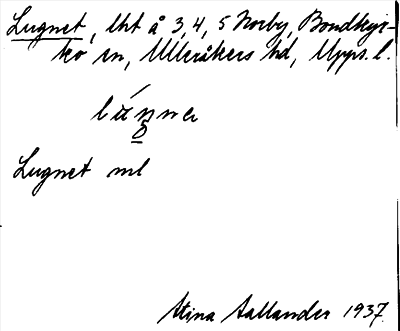 Lugnet, lht å 3, 4, 5 Norby, Bondkyr-
ko sn, Ulleråkers hd, Upps. l.
Lugnet ml
Stina Aallander 1937.